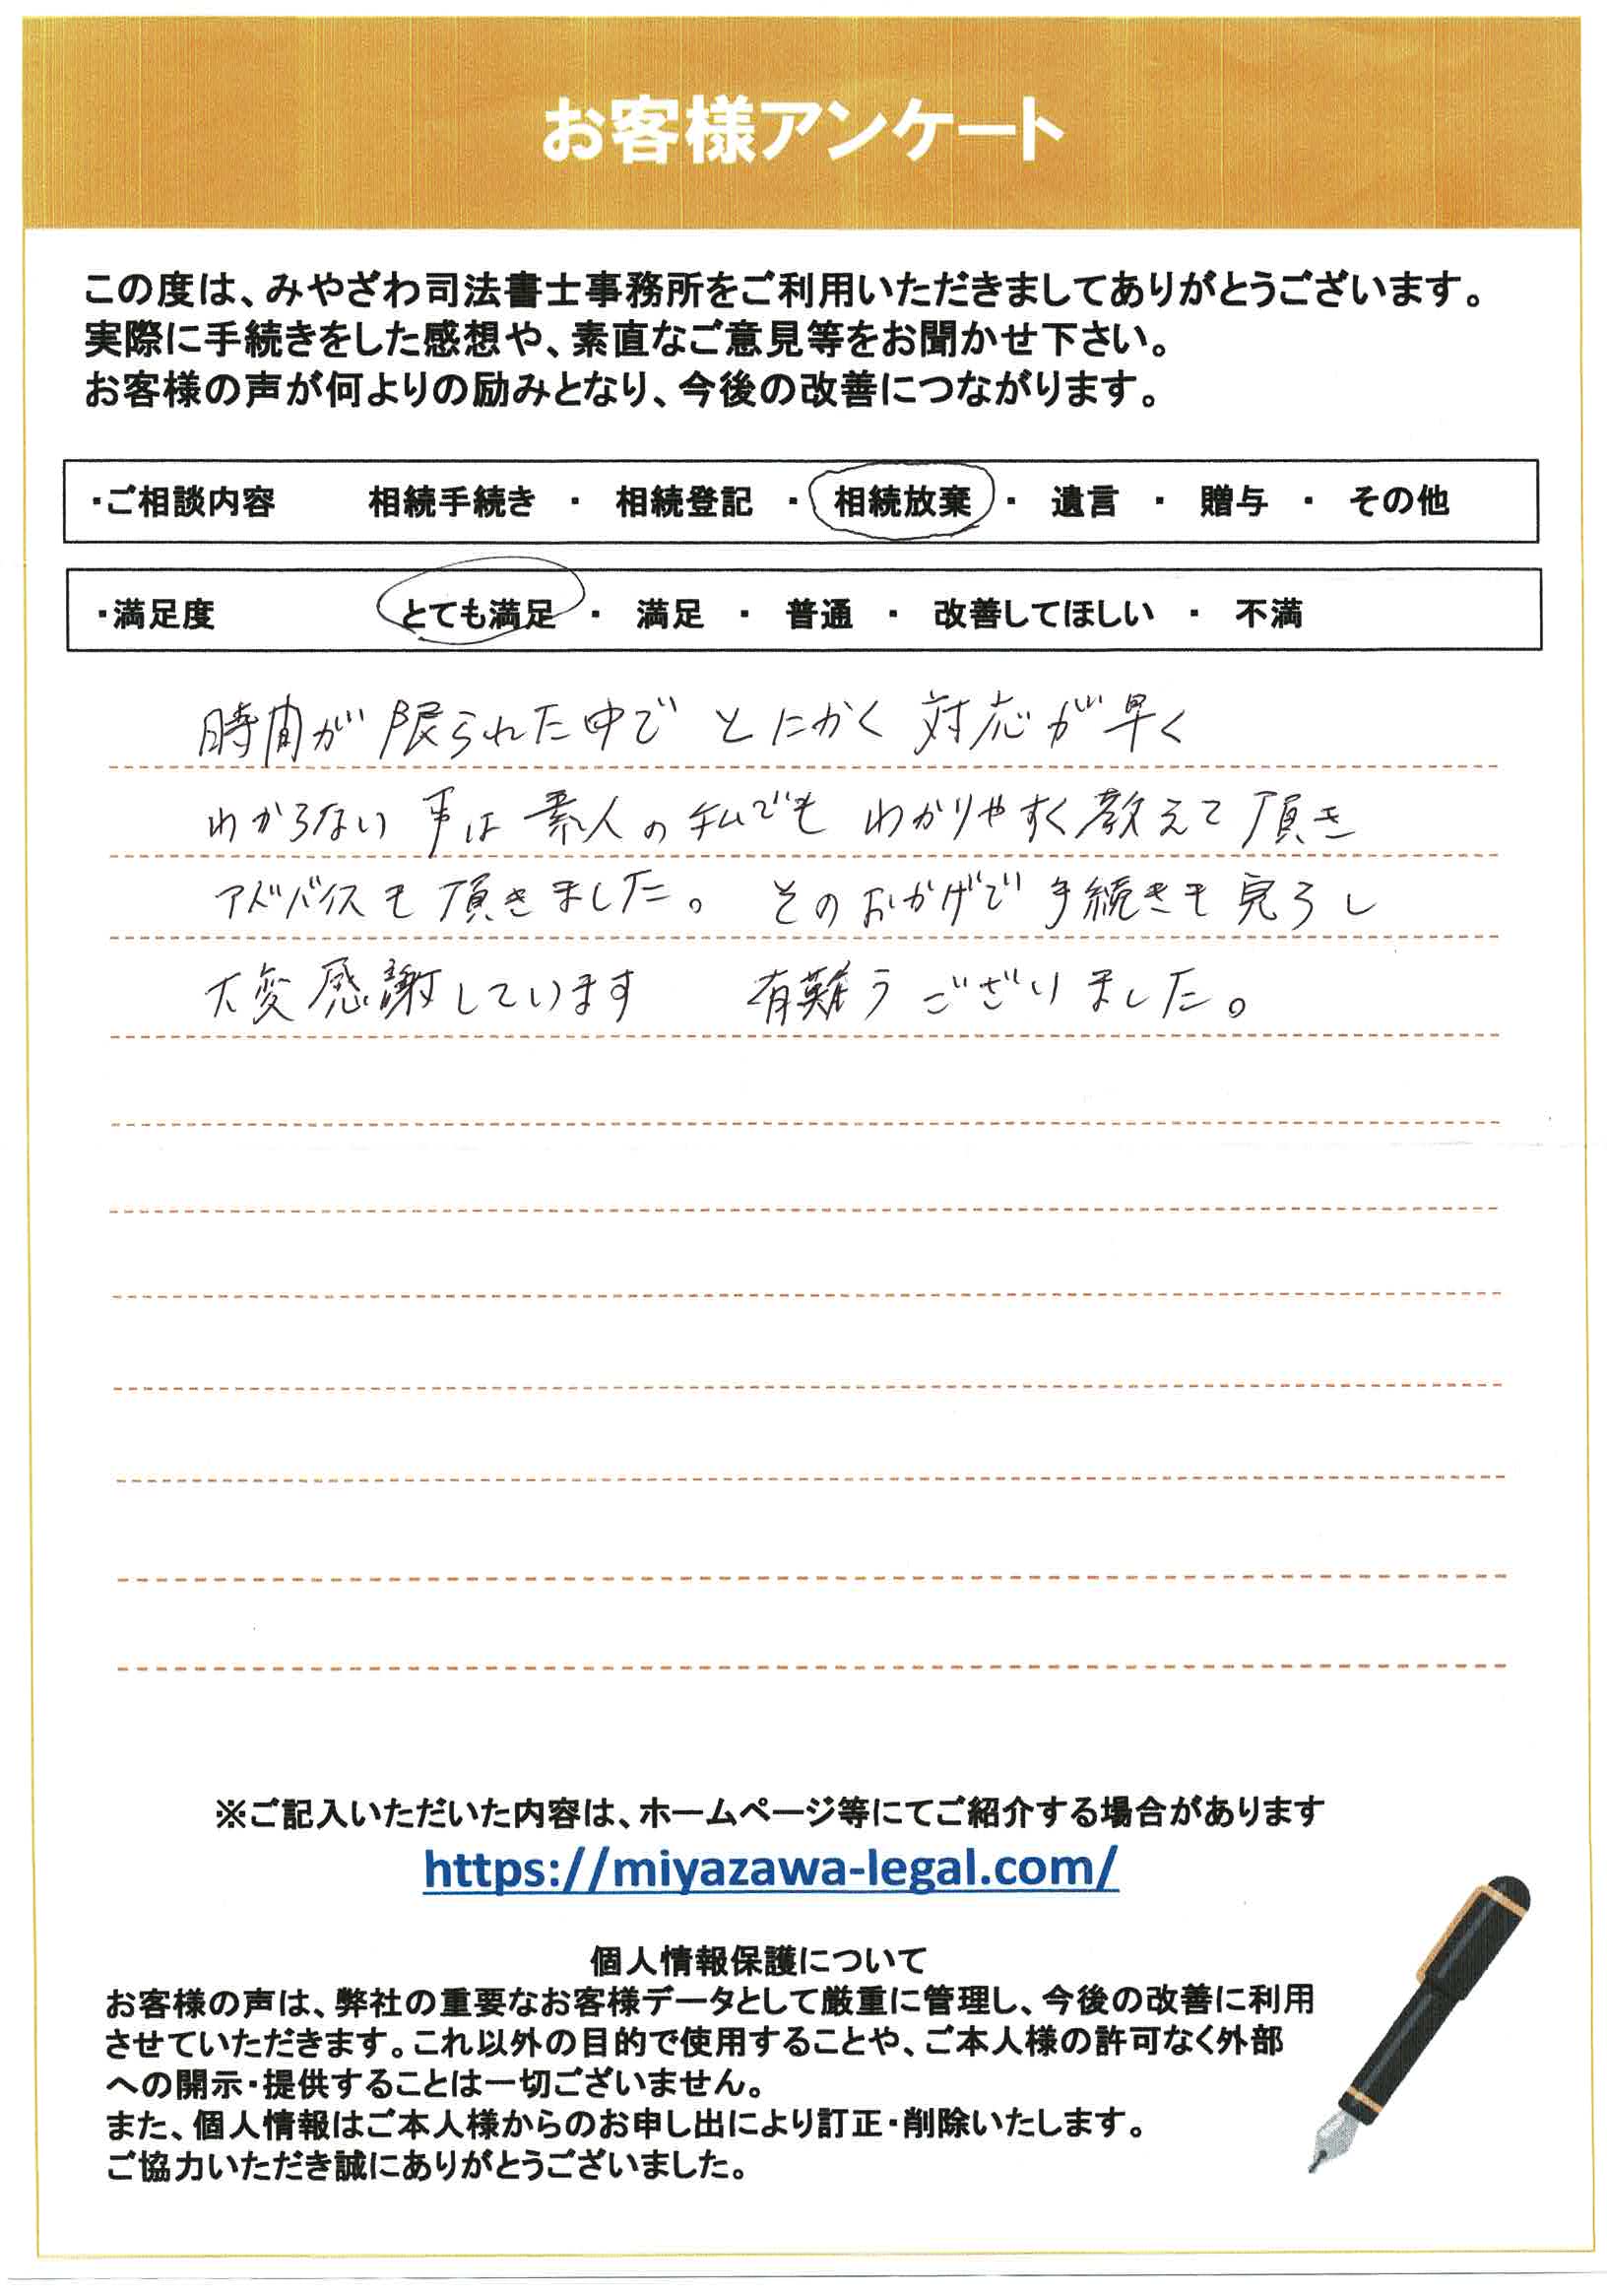 お客様アンケート
この度は、みやざわ司法書士事務所をご利用いただきましてありがとうございます。
実際に手続きをした感想や、素直なご意見等をお聞かせ下さい。
お客様の声が何よりの励みとなり、今後の改善につながります。
・ご相談内容 相続手続き ・ 相続登記 ・ 相続放棄 ・ 遺言 ・ 贈与 ・ その他
・満足度 とても満足 ・ 満足 ・ 普通 ・ 改善してほしい ・ 不満
時間が限られた中で とにかく 対応が早く
わからない事は素人の私でも わかりやすく教えて頂き
アドバイスも頂きました。 そのおかげで手続きも完了し
大変感謝しています 有難うございました。
※ご記入いただいた内容は、ホームページ等にてご紹介する場合があります
https://miyazawa-legal.com/
個人情報保護について
お客様の声は、弊社の重要なお客様データとして厳重に管理し、今後の改善に利用
させていただきます。これ以外の目的で使用することや、ご本人様の許可なく外部
への開示・提供することは一切ございません。
また、個人情報はご本人様からのお申し出により訂正・削除いたします。
ご協力いただき誠にありがとうございました。